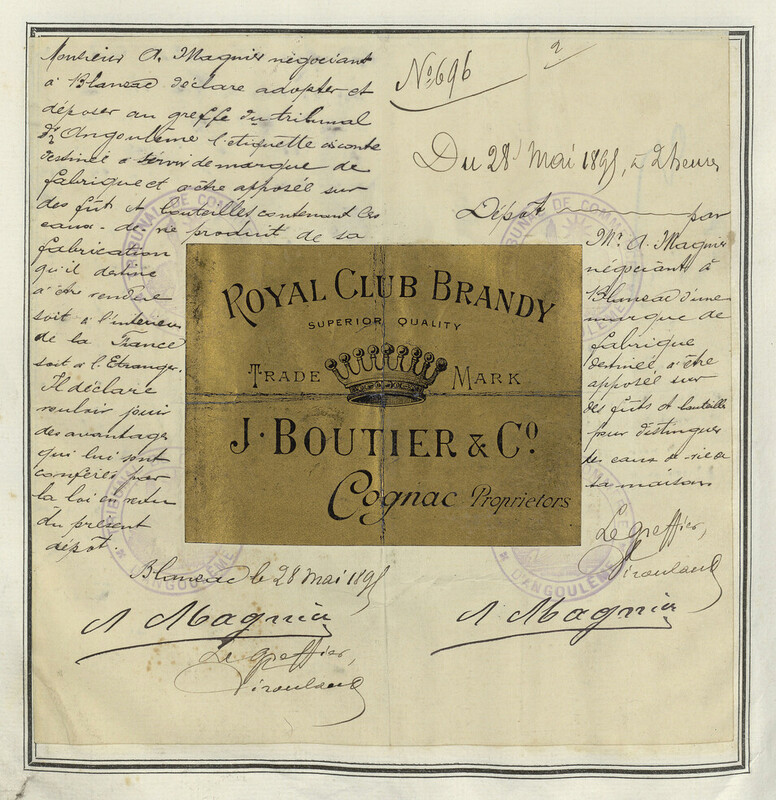 Monsieur A. Magnier négociant
à Blanzac déclare adopter et
déposer au greffe du tribunal
d'Angoulême l'étiquette ci contre
destinée à servir de marque de
fabrique et à être apposée sur
des fûts et bouteilles contenant les
eaux-de-vie produit de sa
fabrication
qu'il destine
à être vendue
soit à l'intérieur
de la France
soit à l'Etranger.
Il déclare
vouloir jouir
des avantages
qui lui sont
conférés par
la loi en vertu
du présent
dépôt
Blanzac le 28 Mai 1895
A Magnier
Le Greffier,
N° 696
2
Du 28 Mai 1895, à 2 heures
Dépôt par
Mr. A. Magnier
négociant à
Blanzac d'une
marque de
fabrique
destinée à être
apposée sur
des fûts et bouteilles
pour distinguer
les eaux de vie de
sa maison
Le Greffier,
A Magnier
ROYAL CLUB BRANDY
SUPERIOR QUALITY
TRADE MARK
J. BOUTIER & Co
Cognac Proprietors
TRIBUNAL DE COMMERCE
D'ANGOULÊME